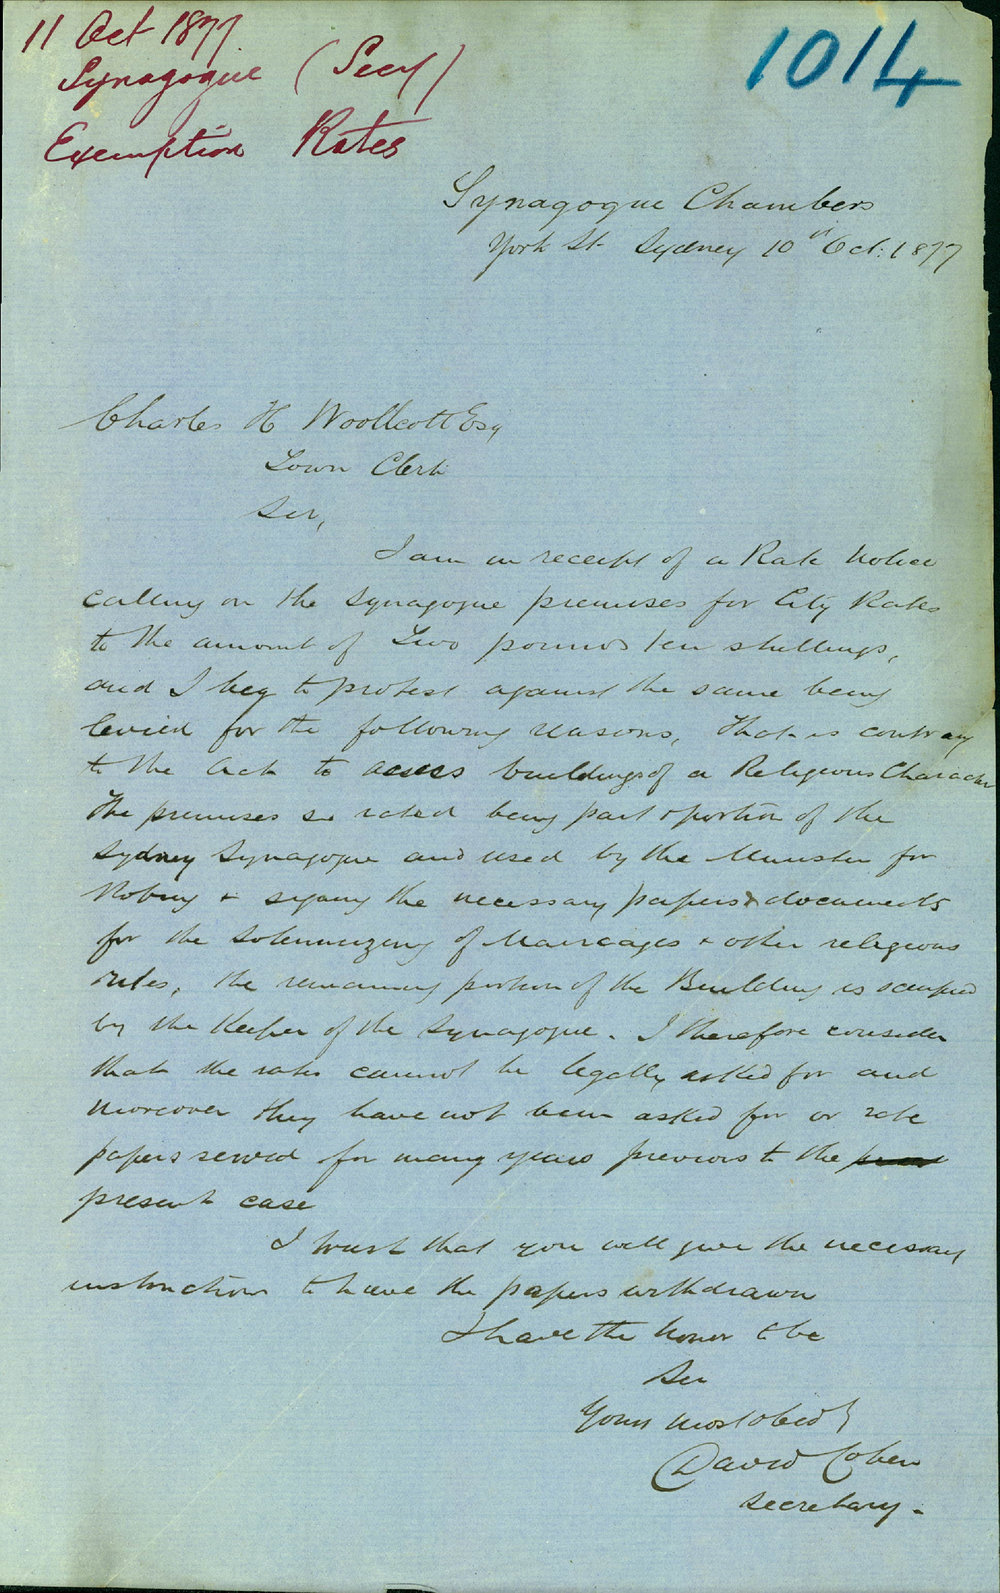 11 Oct 1877
Synagogue (Secy)
Exemption Rates
1014
Synagogue Chambers
York St. Sydney 10th Oct. 1877
Charles H Woollcott Esq
Town Clerk
Sir,
I am in receipt of a Rate Notice
calling on the Synagogue premises for City Rates
to the amount of Two pounds ten shillings,
and I beg to protest against the same being
levied for the following reasons, That is contrary
to the Act to assess buildings of a Religious Character
The premises so rated being part & portion of the
Sydney Synagogue and used by the Minister for
Robing & signing the necessary papers & documents
for the Solemnizing of Marriages & other religious
rites, the remaining portion of the Building is occupied
by the Keeper of the Synagogue. I therefore consider
that the rates cannot be legally asked for and
moreover they have not been asked for or rate
papers served for many years previous to the
present case
I trust that you will give the necessary
instructions to have the papers withdrawn
I have the honor to be
Sir
Yours most obedt
David Cohen
Secretary.